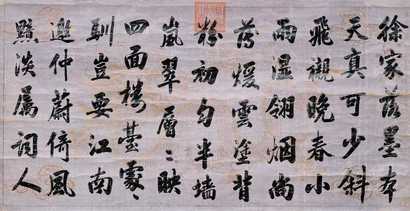 徐家落墨本
天真可少斜
飛襯晚春小
雨濕翎烟尚
薄煖雲塗背
粉初勻半墙
嵐翠層〻映
四面樓臺處〻
馴豈要江南
邀仲蔚倚風
黯淡属詞人